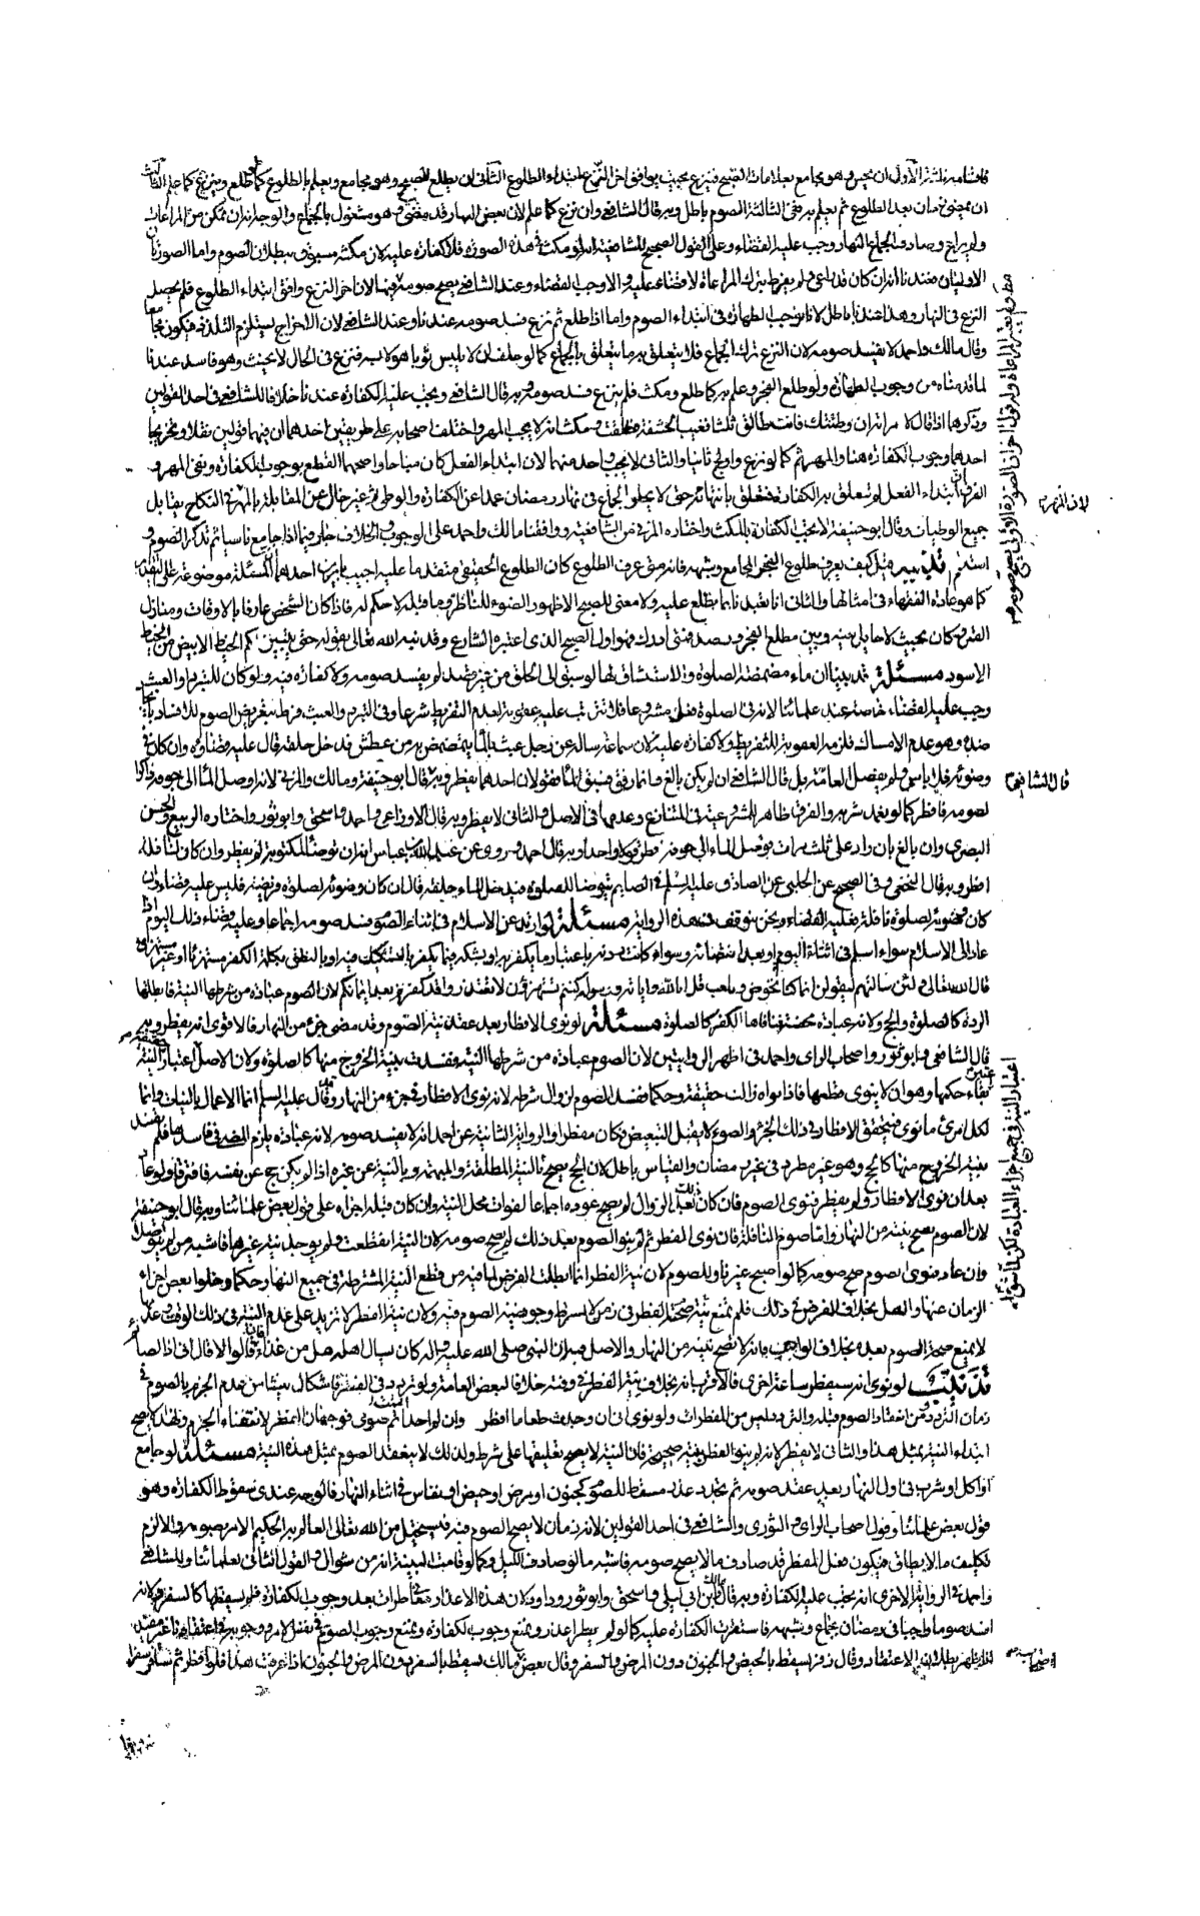 فاقسامه ثلثة الاول ان يحس وهو يجامع بعلامات الصبح فينزع بحيث يوافق اخر النزع ابتداء الطلوع الثاني ان يطلع الصبح وهو مجامع ويعلم بالطلوع كما طلع وينزع كما علم الثالث
ان يمضي زمان بعد الطلوع ثم يعلم به ففي الثالثة الصوم باطل وبه قال الشافعي وان نزع كما علم لان بعض النهار قد مضى وهو مشغول بالجماع والوجه انه ان تمكن من المراعات
ولم يراع وصادف الجماع النهار وجب عليه القضاء وعلى القول الصحيح للشافعية انه لو مكث في هذه الصورة فلا كفارة عليه لان مكثه مسبوق ببطلان الصوم واما الصورتان
الاوليان فعندنا انه ان كان قد راعى ولم يفرط بترك المراعاة لا قضاء عليه والا وجب القضاء وعند الشافعي يصح صومه فيهما لان اخر النزع وافق ابتداء الطلوع فلم يحصل
النزع في النهار وهذا عندنا باطل لانا نوجب الطهارة في ابتداء الصوم واما اذا طلع ثم نزع فسد صومه عندنا وعند الشافعي لان الاخراج يستلزم التلذذ فيكون مجامعا
وقال مالك واحمد لا يفسد صومه لان النزع ترك الجماع فلا يتعلق به ما يتعلق بالجماع كما لو حلف ان لا يلبس ثوبا هو لابسه فنزع في الحال لا يحنث وهو فاسد عندنا
لما قدمناه من وجوب الطهارة ولو طلع الفجر وعلم به كما طلع ومكث فلم ينزع فسد صومه وبه قال الشافعي ويجب عليه الكفارة عندنا خلافا للشافعي في احد القولين
وذكرها اذا قال لامراته ان وطئتك فانت طالق ثلثا فغيب الحشفة وطلقت ومكث انه لا يجب المهر واختلف اصحابه على طريقين احدهما ان فيهما قولين نقلا وتخريجا
احدهما وجوب الكفارة هنا والمهر ثم كما لو نزع واولج ثانيا والثاني لا يجب واحد منهما لان ابتداء الفعل كان مباحا واصحهما القطع بوجوب الكفارة ونفي المهر و
الفرق ان ابتداء الفعل لم يتعلق به الكفارة فتتعلق بانتهائه حتى لا يخلو الجماع في نهار رمضان عمدا عن الكفارة والوطي ثم غير خال عن المقابلة بالمهر في النكاح يقابل
جميع الوطيات وقال ابو حنيفة لا يجب الكفارة بالمكث واختاره المزني من الشافعية ووافقنا مالك واحمد على الوجوب والخلاف جار فيما اذا جامع ناسيا ثم تذكر الصوم و
استدام تذنيب قيل كيف يعرف طلوع الفجر المجامع وشبهه فانه متى عرف الطلوع كان الطلوع الحقيقي متقدما عليه اجيب بامرين احدهما ان المسئلة موضوعة على التقدير
كما هو عادة الفقهاء في امثالها والثاني انا نعبد بما يطلع عليه ولا معنى للصبح الا ظهور الضوء للناظر وما قبله لا حكم له فاذا كان الشخص عارفا بالاوقات ومنازل
القمر وكان بحيث لا حايل بينه وبين مطلع الفجر وترصد فمتى ادرك فهو اول الصبح الذي اعتبره الشارع وقد نبه الله تعالى بقوله حتى يتبين لكم الخيط الابيض من الخيط
الاسود مسئلة قد بينا ان ماء مضمضة الصلوة والاستنشاق لها لو سبق الى الحلق من غير قصد لم يفسد صومه ولا كفارة فيه ولو كان للتبرد او العبث
وجب عليه القضاء خاصة عند علمائنا لانه في الصلوة فعل مشروعا فلا تترتب عليه عقوبة لعدم التفريط شرعا وفي التبرد والعبث فرط بتعريض الصوم للافساد بايجاد
ضده وهو عدم الامساك فلزمه العقوبة للتفريط ولا كفارة عليه لان سماعة ساله عن رجل عبث بالماء يتمضمض به من عطش فدخل حلقه قال عليه قضاؤه وان كان في
وضوئه فلا باس به ولم يفصل العامة بل قال الشافعي ان لم يكن بالغ وانما رفق فسبق الماء فقولان احدهما يفطر وبه قال ابو حنيفة ومالك والمزني لانه اوصل الماء الى جوفه ذاكرا
لصومه فافطر كما لو تعمد شربه والفرق ظاهر للمشروعية في المتنازع وعدمها في الاصل والثاني لا يفطر وبه قال الاوزاعي واحمد واسحق وابو ثور واختاره الربيع والحسن
البصري وان بالغ بان زاد على ثلث مرات فوصل الماء الى جوفه فطر قولا واحدا وبه قال احمد وروي عن عبد الله بن عباس انه ان توضا لمكتوبة لم يفطر وان كان لنافلة
افطر وبه قال النخعي وفي الصحيح عن الحلبي عن الصادق عليه السلم في الصايم يتوضا للصلوة فيدخل الماء حلقه قال ان كان وضوئه لصلوة فريضة فليس عليه قضاء وان
كان وضوئه لصلوة نافلة فعليه القضاء ونحن نتوقف في هذه الرواية مسئلة لو ارتد عن الاسلام في اثناء الصوم فسد صومه اجماعا وعليه قضاء ذلك اليوم اذا
عاد الى الاسلام سواء اسلم في اثناء اليوم او بعد انقضائه وسواء كانت ردته باعتقاد ما يكفر به او بشكه فيما يكفر بالشك فيه او بالنطق بكلمة الكفر مستهزئا او غير مستهزئ
قال الله تعالى ولئن سالتهم ليقولن انما كنا نخوض ونلعب قل ابالله واياته ورسوله كنتم تستهزئون لا تعتذروا قد كفرتم بعد ايمانكم لان الصوم عبادة من شرطها النية فابطلها
الردة كالصلوة والحج ولانه عبادة محضة فنافاها الكفر كالصلوة مسئلة لو نوى الافطار بعد عقد نية الصوم وقد مضى جزء من النهار فالاقوى انه يفطر وبه
قال الشافعي وابو ثور واصحاب الراي واحمد في اظهر الروايتين لان الصوم عبادة من شرطها النية ففسدت بنية الخروج منها كالصلوة ولان الاصل اعتبار النية
بقاء حكمها وهو ان لا ينوى قطعها فاذا نواه زالت حقيقة وحكما ففسد الصوم لزوال شرطه لانه نوى الافطار في جزء من النهار وقال عليه السلم انما الاعمال بالنيات وانما
لكل امرئ ما نوى فيتحقق الافطار في ذلك الجزء والصوم لا يقبل التبعيض فكان مفطرا والرواية الثانية عن احمد انه لا يفسد صومه لانه عبادة يلزم المضي في فاسدها فلم يفسد
بنية الخروج منها كالحج وهو غير مطرد في غير رمضان والقياس باطل لان الحج يصح بالنية المطلقة والمبهمة وبالنية عن غيره اذا لم يكن حج عن نفسه فافترقا ولو عاد
بعد ان نوى الافطار ولم يفطر فنوى الصوم فان كان ذلك بعد الزوال لم يصح عوده اجماعا لفوات محل النية وان كان قبله اجزاه على قول بعض علمائنا وبه قال ابو حنيفة
لان الصوم يصح بنية من النهار واما صوم النافلة فان نوى الفطر ثم لم ينو الصوم بعد ذلك لم يصح صومه لان النية انقطعت فلم يوجد نية غيرها فاشبه من لم ينو اصلا
وان عاد فنوى الصوم صح صومه كما لو اصبح غير ناو للصوم لان نية الفطر انما ابطلت الفرض لما فيه من قطع النية المشترطة في جميع النهار حكما وخلو بعض اجزاء
الزمان عنها والنفل بخلاف الفرض في ذلك فلم تمنع نية الفطر في زمن لا يشترط وجود نية الصوم فيه ولان نية الفطر لا تزيد على عدم النية في ذلك الوقت وعدمها
لا يمنع صحة الصوم بعده بخلاف الواجب فانه لا يصح بنية من النهار والاصل فيه ان النبي صلى الله عليه واله كان يسال اهله هل من غداء فان قالوا لا قال اني اذا صائم
تذنيب لو نوى انه سيفطر ساعة اخرى فالاقرب انه بخلاف نية الفطر في وقته خلافا لبعض العامة ولو تردد في الفطر فاشكال ينشا من عدم الجزم بالصوم في
زمان التردد ومن انعقاد الصوم قبله والتردد ليس من المفطرات ولو نوى انه ان وجدت طعاما افطر وان لم اجد اتممت صومي فوجهان الفطر لانتفاء الجزم ولهذا لا يصح
ابتداء النية بمثل هذا والثاني لا يفطر لانه لم ينو الفطر بنية صحيحة فان النية لا يصح تعليقها على شرط ولذلك لا ينعقد الصوم بمثل هذه النية مسئلة لو جامع
او اكل او شرب في اول النهار بعد عقد صومه ثم تجدد عذر مسقط للصوم كجنون او مرض او حيض او نفاس في اثناء النهار فالوجه عندي سقوط الكفارة وهو
قول بعض علمائنا وقول اصحاب الراي والثوري والشافعي في احد القولين لانه زمان لا يصح الصوم فيه فيستحيل من الله تعالى العالم به الحكيم الامر بصومه والا لزم
تكليف ما لا يطاق فيكون فعل المفطر قد صادف ما لا يصح صومه فاشبه ما لو صادف الليل وكما لو قامت البينة انه من شوال والقول الثاني لعلمائنا وللشافعي
واحمد في الرواية الاخرى انه يجب عليه الكفارة وبه قال مالك وابن ابي ليلى واسحق وابو ثور وداود لان هذه الاعذار معاني طرات بعد وجوب الكفارة فلم يسقطها كالسفر ولانه
افسد صوما واجبا في رمضان بجماع وشبهه فاستقرت الكفارة عليه كما لو لم يطرا عذر ونمنع وجوب الكفارة ونمنع وجوب الصوم في نفس الامر ووجوبه في اعتقادنا غير مفيد
اذا ظهر بطلان الاعتقاد وقال زفر يسقط بالحيض والجنون دون المرض والسفر وقال بعض مالك يسقط بالسفر دون المرض والجنون اذا عرفت هذا فلو افطر ثم سافر سفرا
لان المهر
قال الشافعي